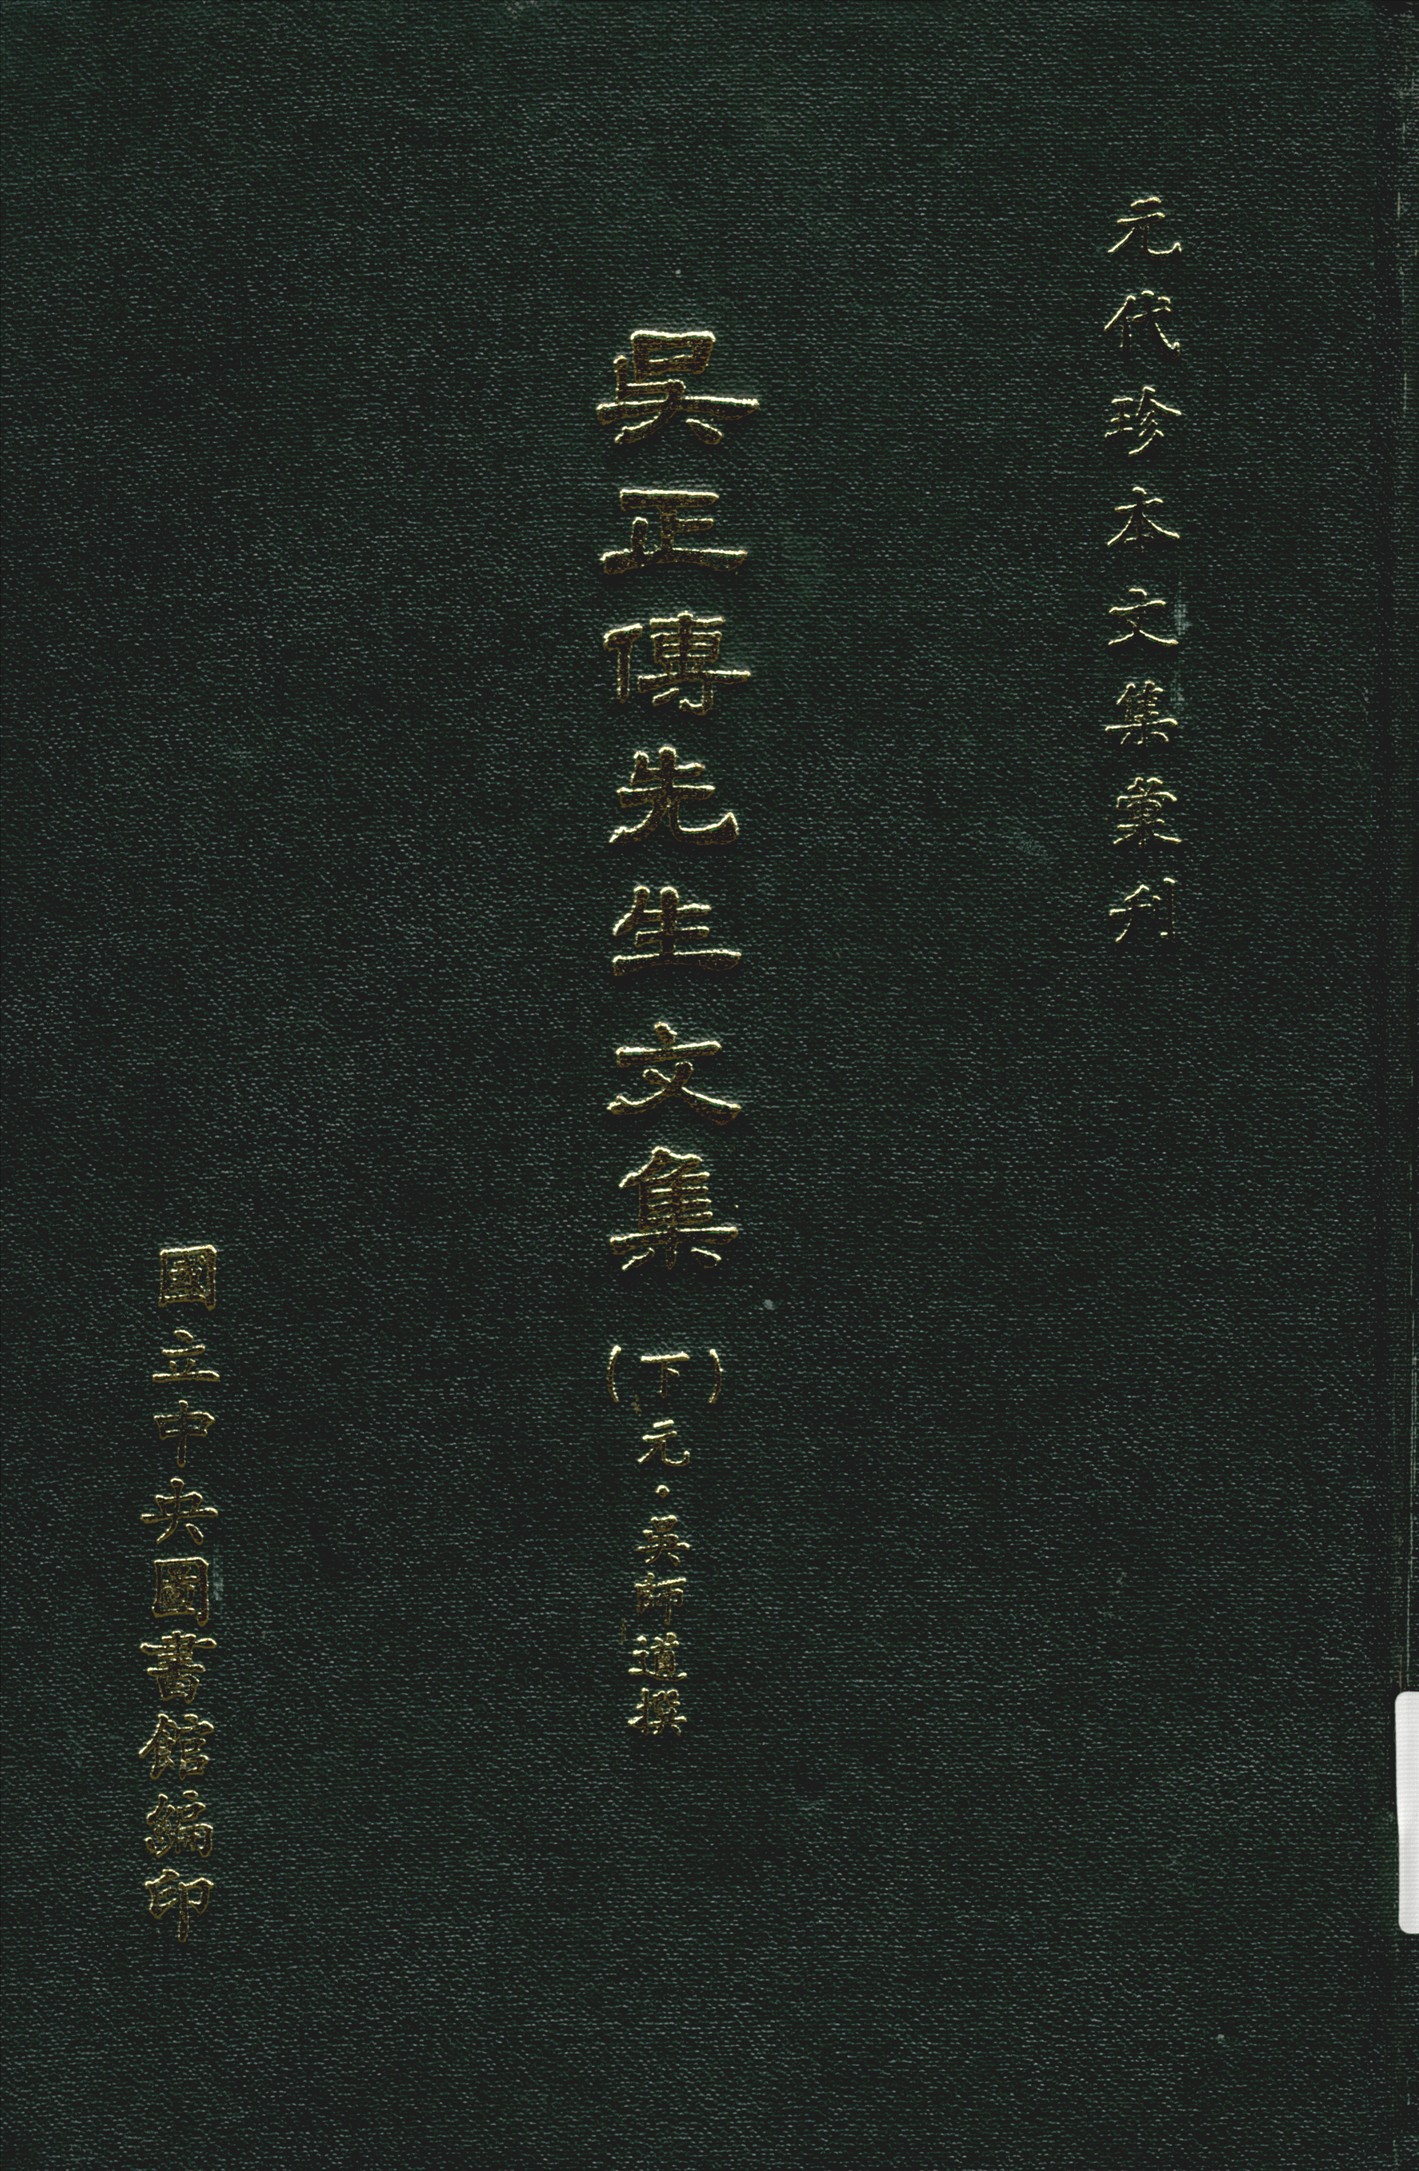 元代珍本文集彙刊
吳正傳先生文集(下)元·吳師道撰
國立中央圖書館編印